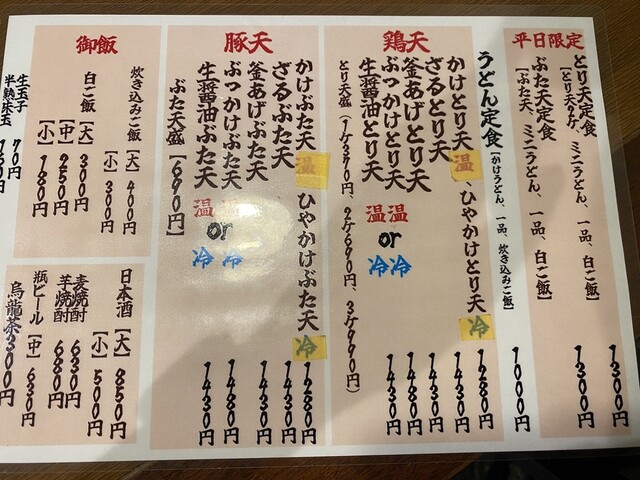 平日限定
とり天定食
【とり天2ケ、ミニうどん、一品、白ご飯】
1300円
ぶた天定食
【ぶた天、ミニうどん、一品、白ご飯】
1300円
うどん定食
【かけうどん、一品、炊き込みご飯】
1000円
鶏天
かけとり天 温、ひやかけとり天 冷 1280円
ざるとり天 1430円
釜あげとり天 1430円
ぶっかけとり天 温 or 冷 1480円
生醤油とり天 温 or 冷 1430円
とり天盛(1ケ370円、2ケ690円、3ケ990円)
豚天
かけぶた天 温、ひやかけぶた天 冷 1280円
ざるぶた天 1430円
釜あげぶた天 1430円
ぶっかけぶた天 温 or 冷 1480円
生醤油ぶた天 温 or 冷 1430円
ぶた天盛【690円】
御飯
炊き込みご飯【大】400円
【小】300円
白ご飯【大】300円
【中】250円
【小】180円
生玉子 70円
半熟味玉
日本酒【大】850円
【小】500円
麦焼酎 630円
芋焼酎 680円
瓶ビール【中】630円
烏龍茶300円